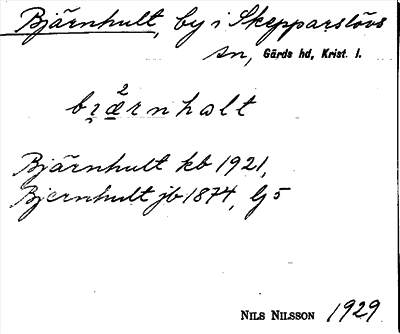 Bjärnhult, by i Skepparslövs
sn, Gärds hd, Krist. l.
bi̯æ²rnhalt
Bjärnhult kb 1921,
Bjernhult jb 1874, G 5
NILS NILSSON 1929